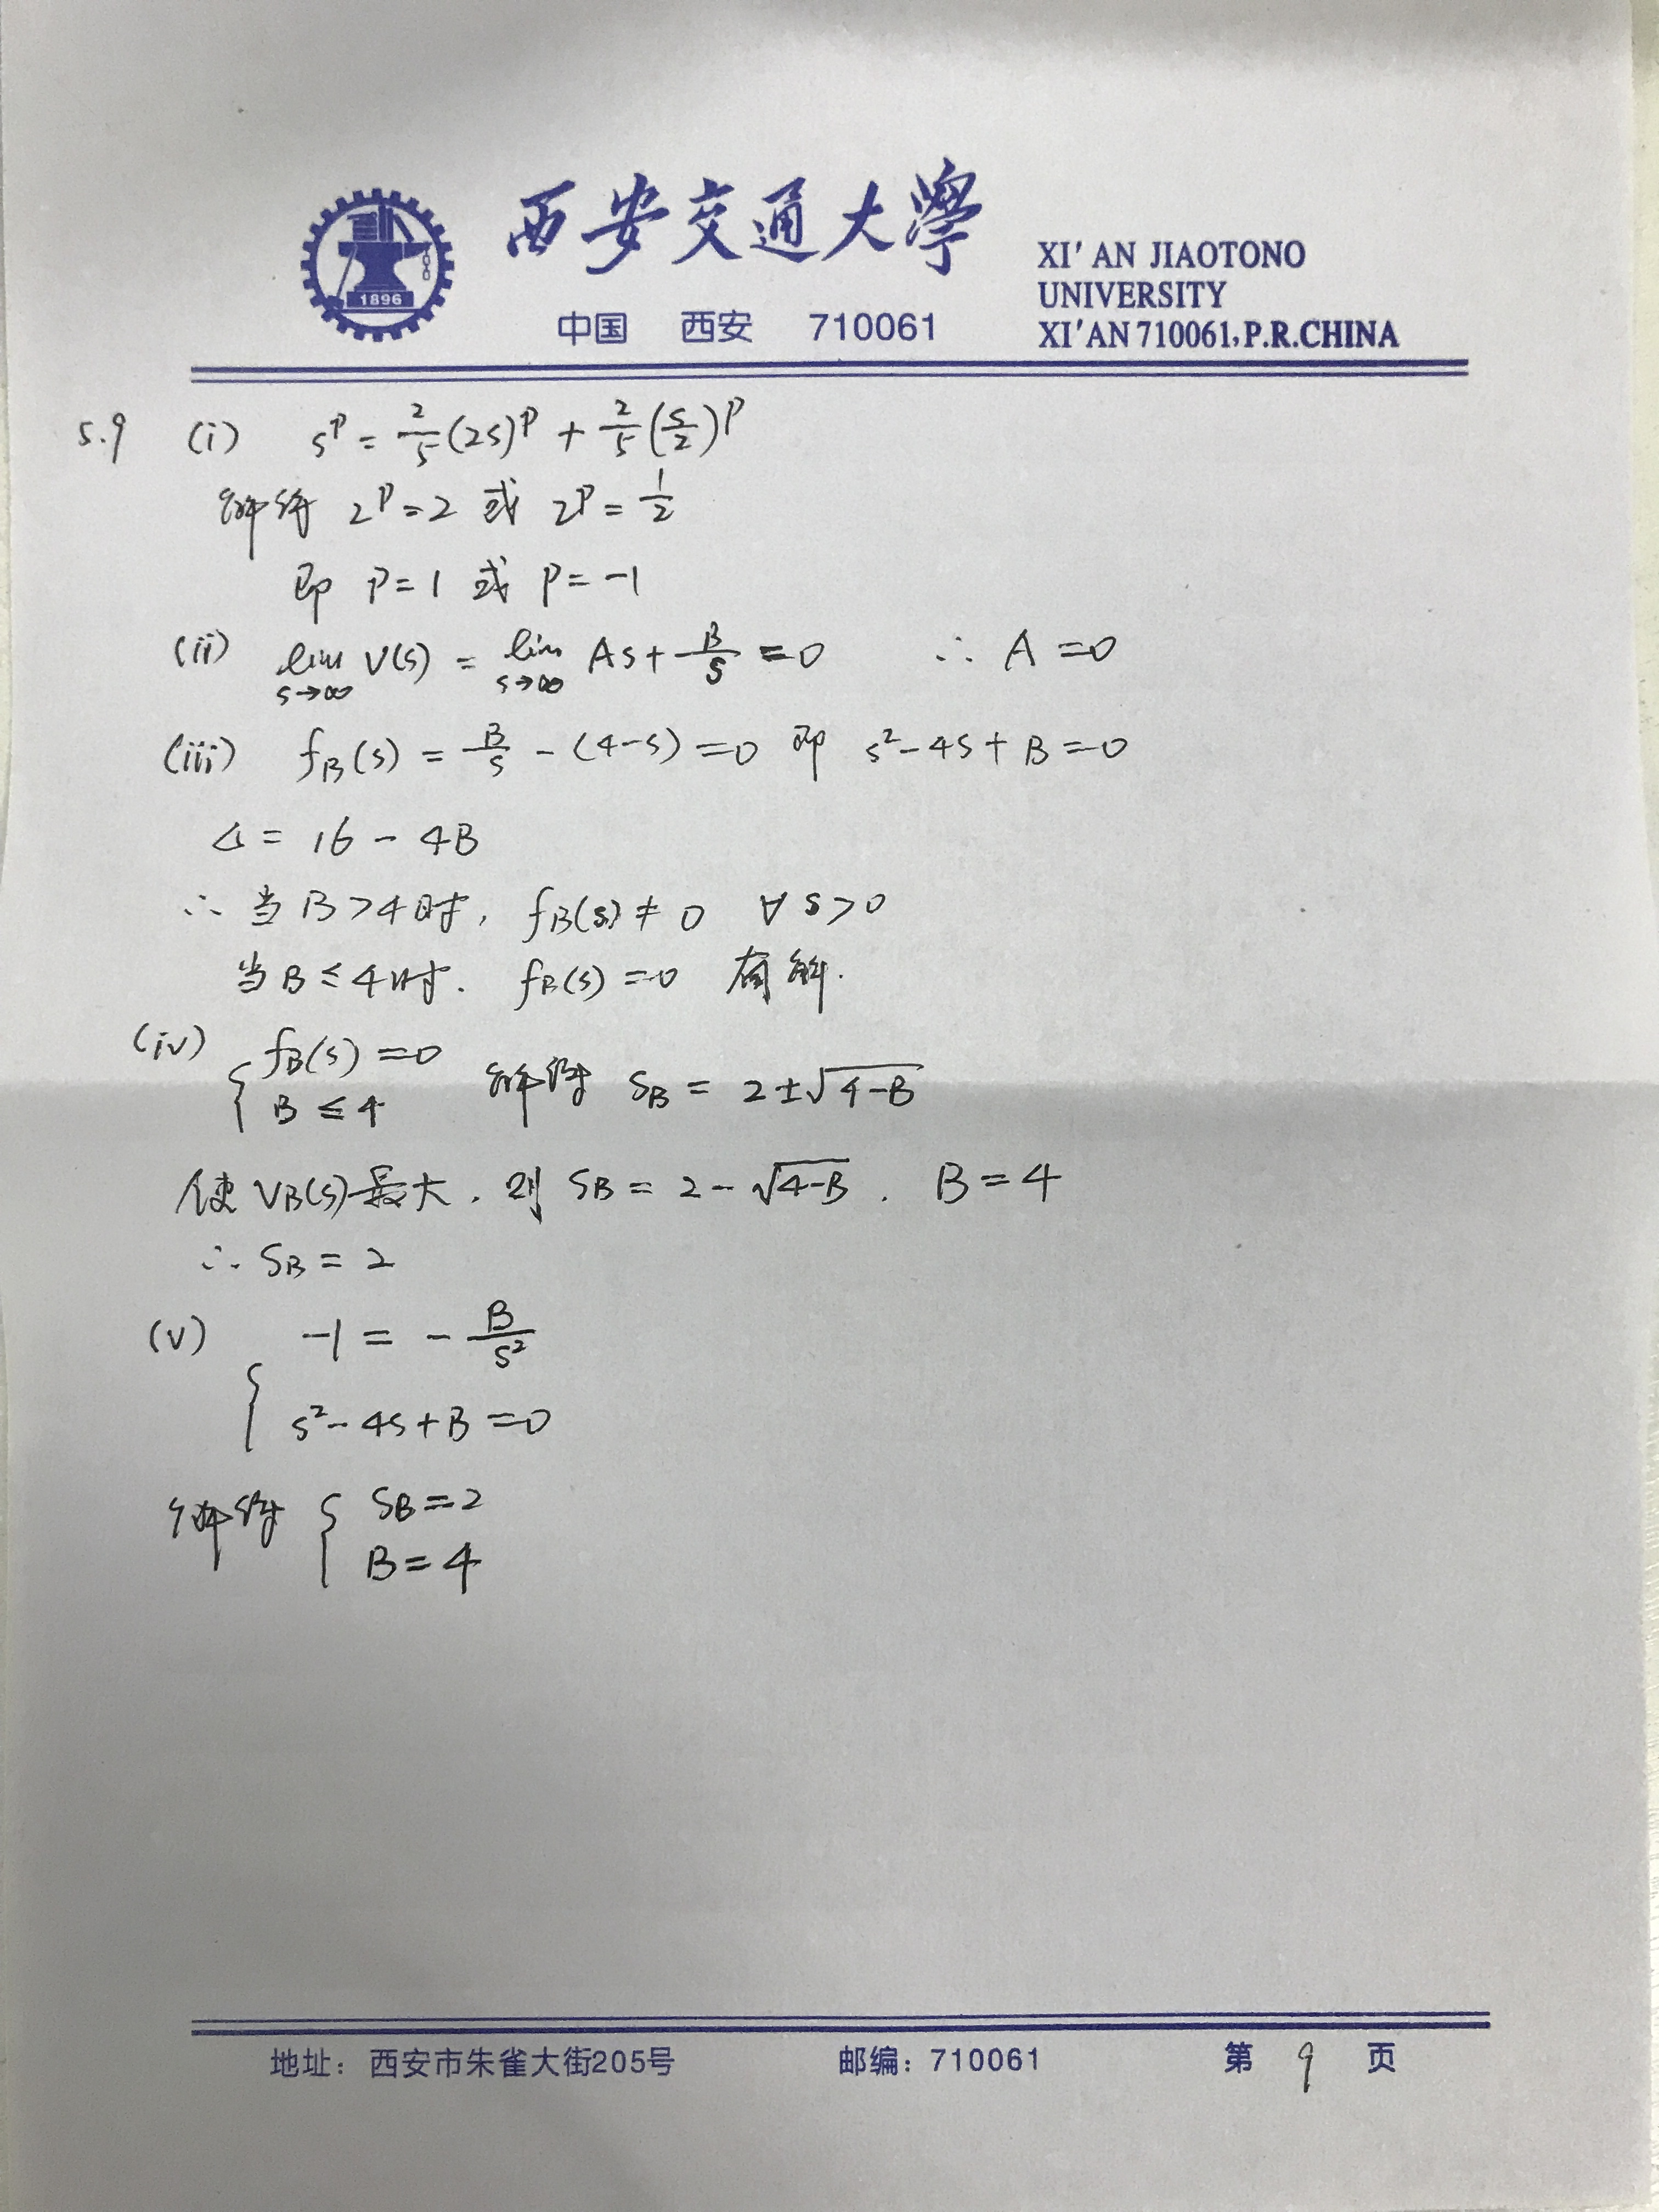 西安交通大學
中国 西安 710061
XI'AN JIAOTONO
UNIVERSITY
XI'AN 710061, P.R.CHINA
1896
5.9 (i) s^P = 2/5 (2s)^P + 2/5 (s/2)^P
解得 2^P = 2 或 2^P = 1/2
即 P = 1 或 P = -1
(ii) lim_{s→∞} V(s) = lim_{s→∞} As + B/s = 0 ∴ A = 0
(iii) f_B(s) = B/s - (4-s) = 0 即 s² - 4s + B = 0
Δ = 16 - 4B
∴ 当 B > 4 时, f_B(s) ≠ 0 ∀ s > 0
当 B ≤ 4 时. f_B(s) = 0 有解.
(iv) { f_B(s) = 0
B ≤ 4 解得 S_B = 2 ± √(4-B)
使 V_B(s) 最大, 则 S_B = 2 - √(4-B) . B = 4
∴ S_B = 2
(v) { -1 = - B/s²
s² - 4s + B = 0
解得 { S_B = 2
B = 4
地址: 西安市朱雀大街205号 邮编: 710061 第 9 页